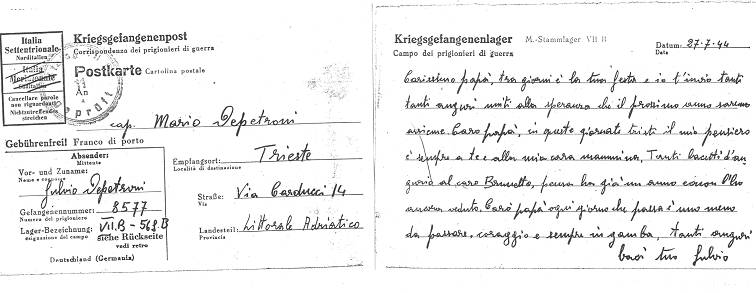 Italia
Settentrionale
Norditalien
Italia
Meridionale
Süditalien
Cancellare parole
non riguardanti
Nichtzutreffendes
streichen
Kriegsgefangenenpost
Corrispondenza dei prigionieri di guerra
Postkarte Cartolina postale
An
A
Geprüft
cap. Mario Depetroni
Gebührenfrei! Franco di porto
Absender:
Mittente
Vor- und Zuname:
Nome e cognome
Fulvio Depetroni
Gefangenennummer: 8577
Numero del prigioniero
Lager-Bezeichnung: VII.B - 569.B
siehe Rückseite
vedi retro
Deutschland (Germania)
Empfangsort: Trieste
Località di destinazione
Straße: Via Carducci 14
Via
Landesteil: Littorale Adriatico
Provincia
Kriegsgefangenenlager M.-Stammlager VII B
Campo dei prigionieri di guerra
Datum: 27-7-44
Data
Carissimo papà, tra giorni è la tua festa e io t'invio tanti
tanti auguri uniti alla speranza che il prossimo anno saremo
assieme. Caro papà, in queste giornate tristi il mio pensiero
è sempre a te e alla mia cara mammina, Tanti bacetti d'au
gurio al caro Brunetto, pensa ha già un anno e non l'ho
ancora veduto. Caro papà ogni giorno che passa è uno meno
da passare, coraggio e sempre in gamba, tanti auguri
baci tuo Fulvio